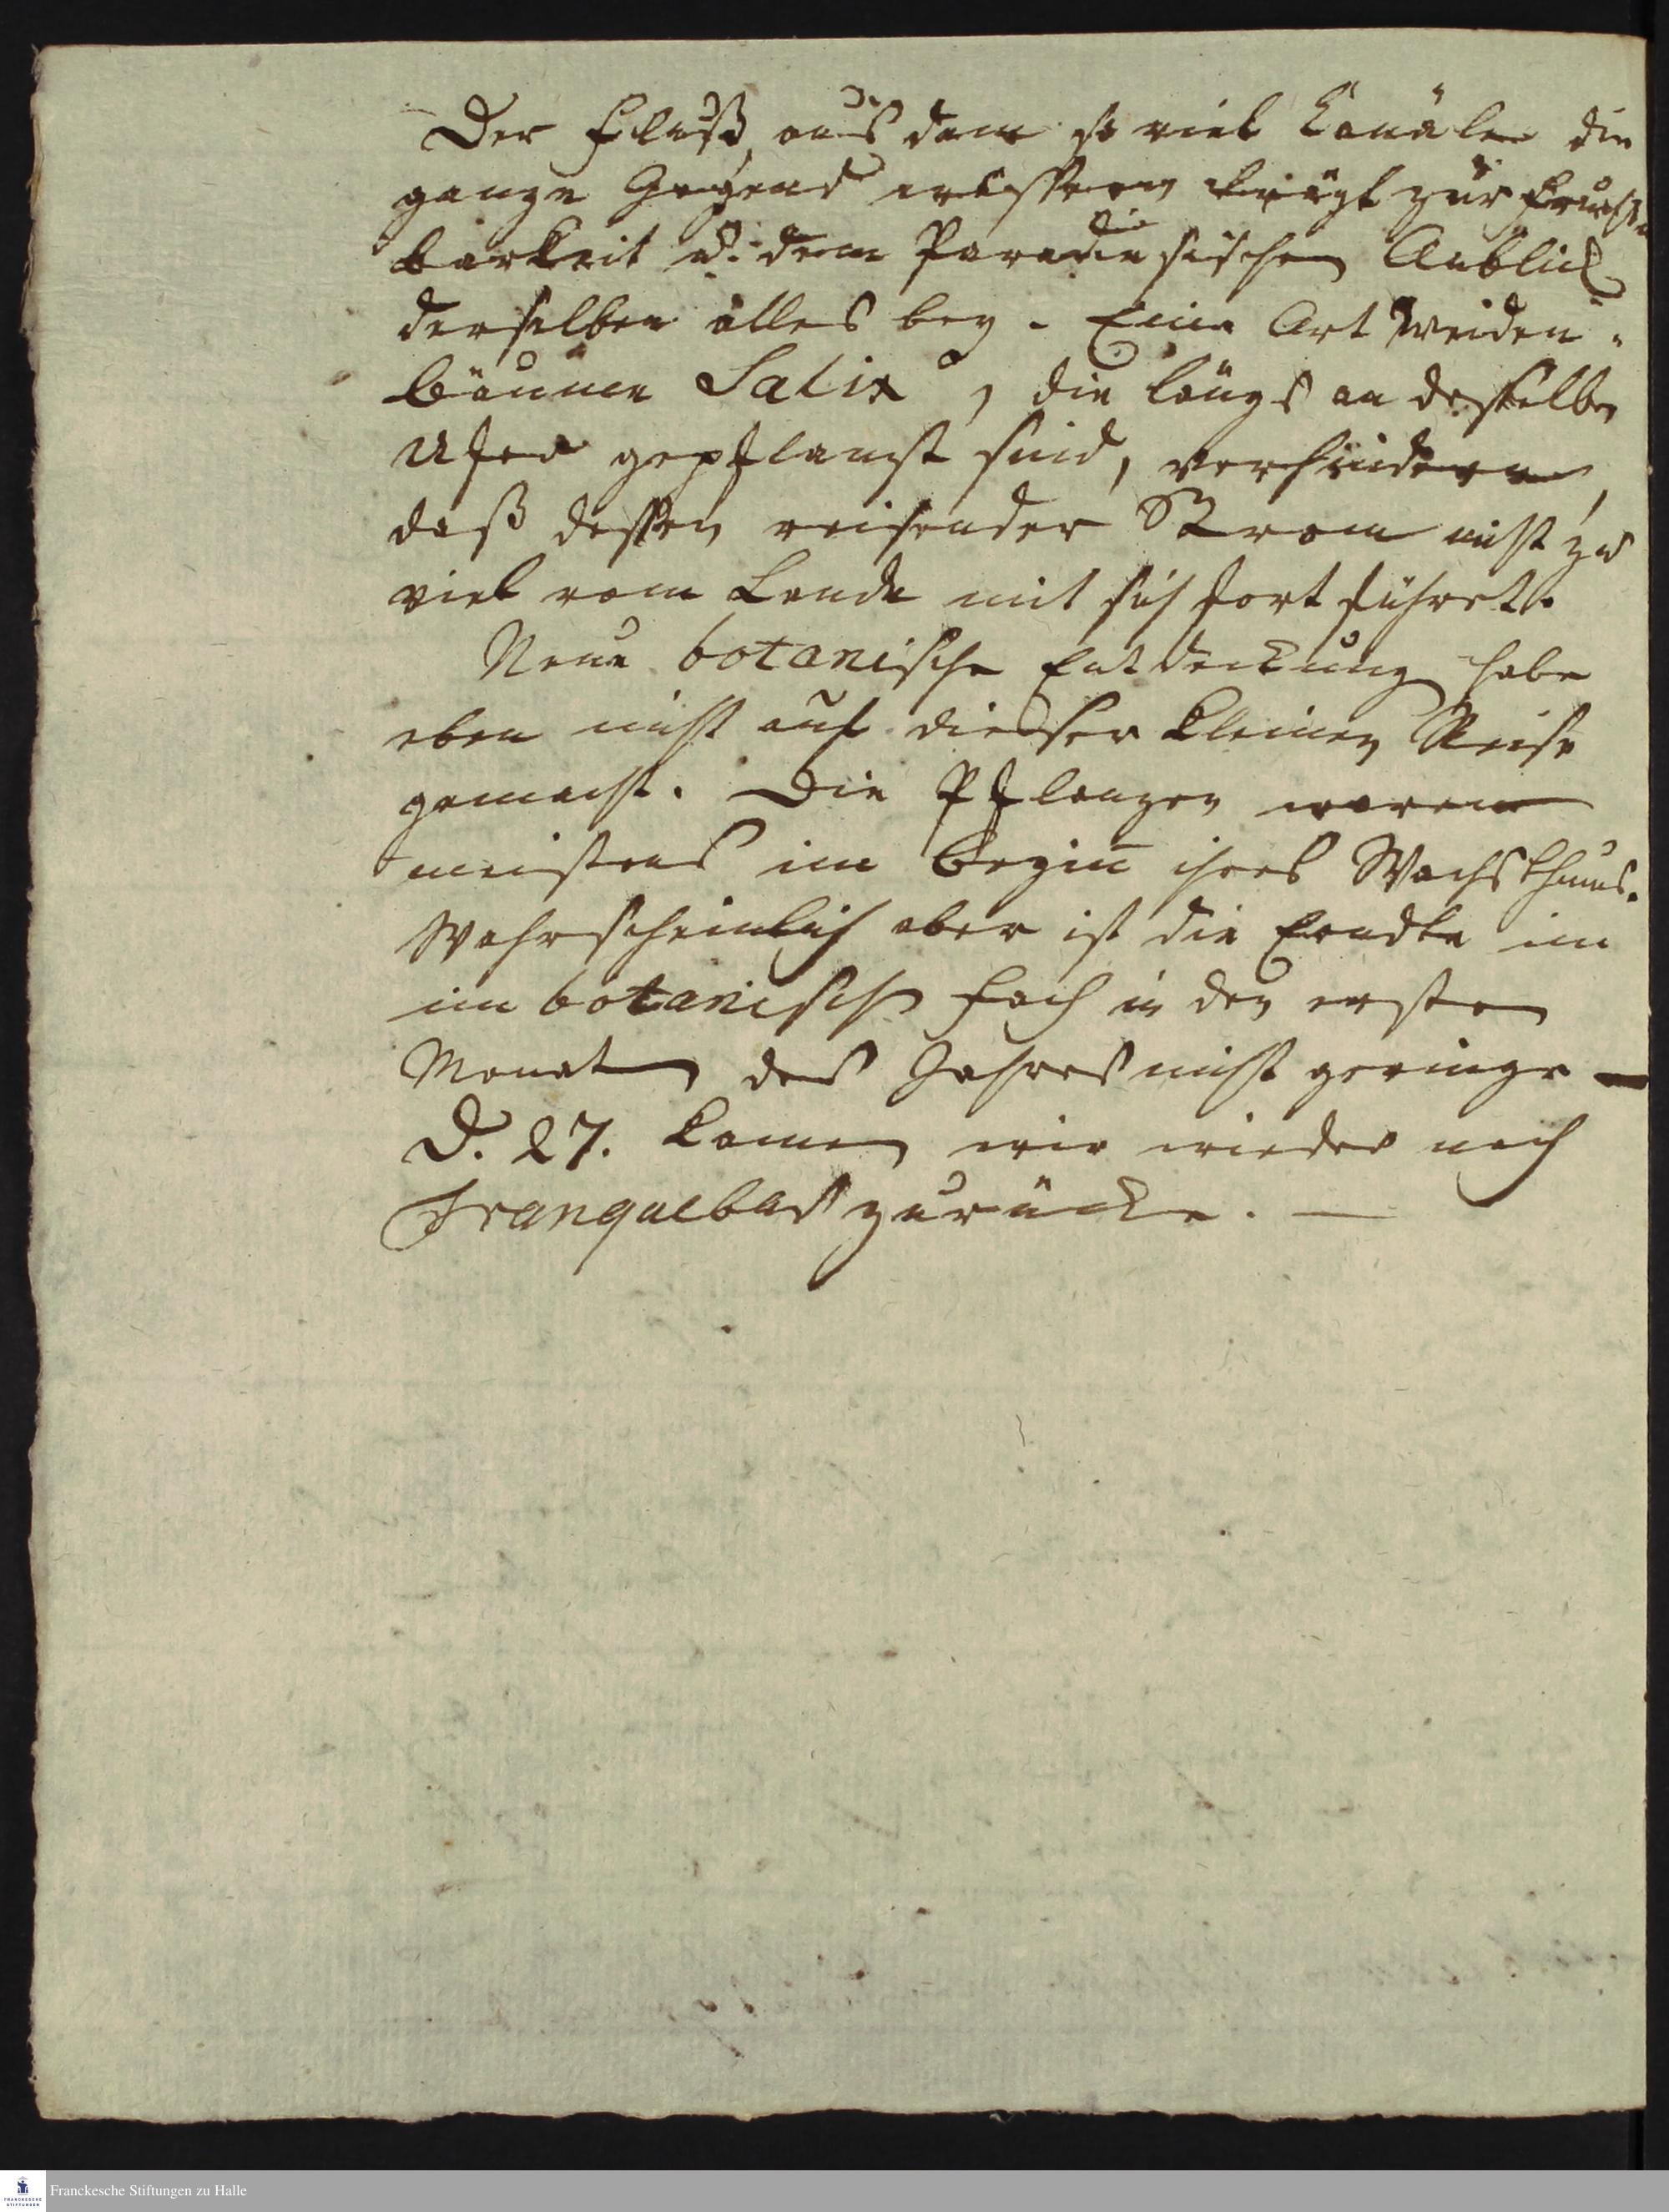 Der Fluß, aus dem so viel Kanäle die
ganze Gegend wässern trägt zur Frucht-
barkeit u. dem Paradiesischen Anblick
derselben alles bey. Eine Art Weiden-
bäume Salix, die längs an desselben
Ufer gepflanzt sind, verhindern,
daß dessen reisender Strom nicht zu
viel vom Lande mit sich fort führet.
Neue botanische Entdeckung habe
eben nicht auf dieser kleinen Reise
gemacht. Die Pflanzen waren
meistens im Begin̄ ihres Wachsthums.
Wahrscheinlich aber ist die Erndte im
im botanisch Fach in den ersten
Monaten des Jahres nicht geringe —
D. 27. kamen wir wieder nach
Tranquebar zurücke. —
Franckesche Stiftungen zu Halle
FRANCKESCHE
STIFTUNGEN